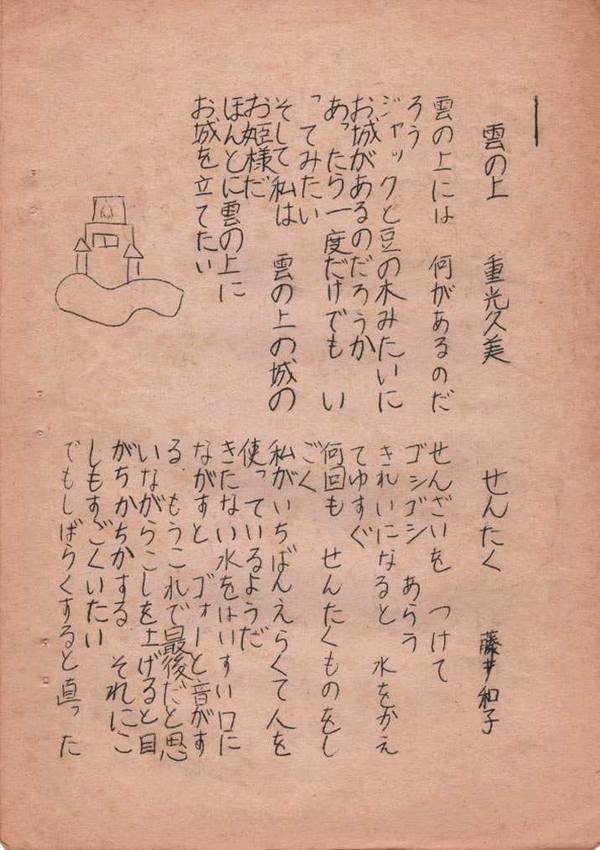 雲の上　重光久美
雲の上には　何があるのだ
ろう
ジャックと豆の木みたいに
お城があるのだろうか
あったら一度だけでも　い
ってみたい
そして私は　雲の上の城の
お姫様だ
ほんとに雲の上に
お城を立てたい
せんたく　藤井和子
せんざいを　つけて
ゴシゴシ　あらう
きれいになると　水をかえ
てゆすぐ
何回も　せんたくものをし
ごく
私がいちばんえらくて人を
使っているようだ
きたない水をはいすい口に
ながすと　ゴォーと音がす
る　もうこれで最後だと思
いながらこしを上げると目
がちかちかする　それにこ
しもすごくいたい
でもしばらくすると直った